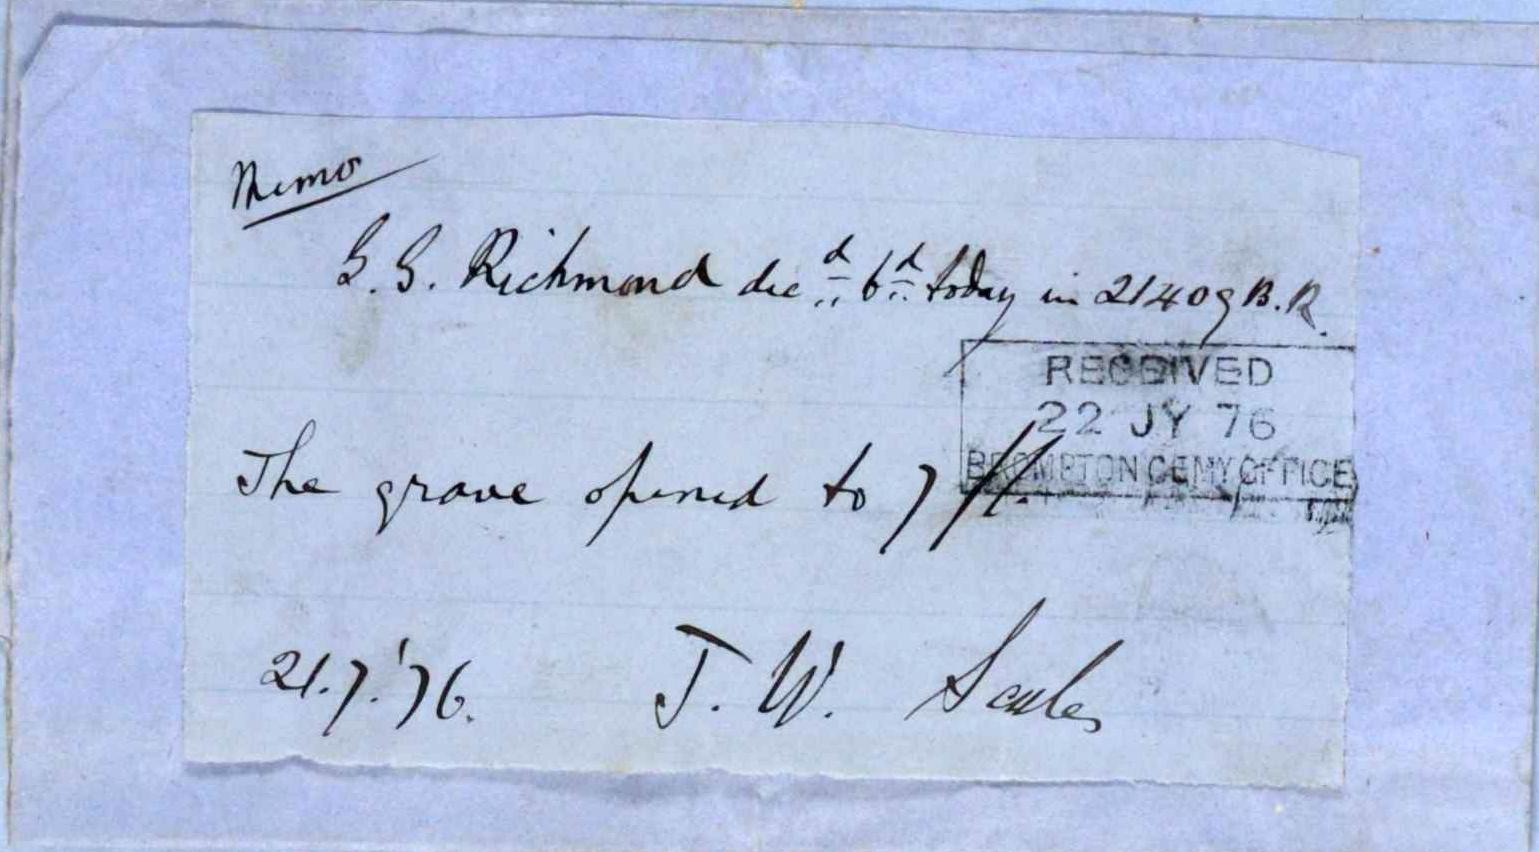 Memo
G. G. Richmond decd bd today in 21409 B.R.
RECEIVED
22 JY 76
BROMPTON CEMY OFFICE
The grave opened to 7 ft.
21.7.'76. J. W. Scales